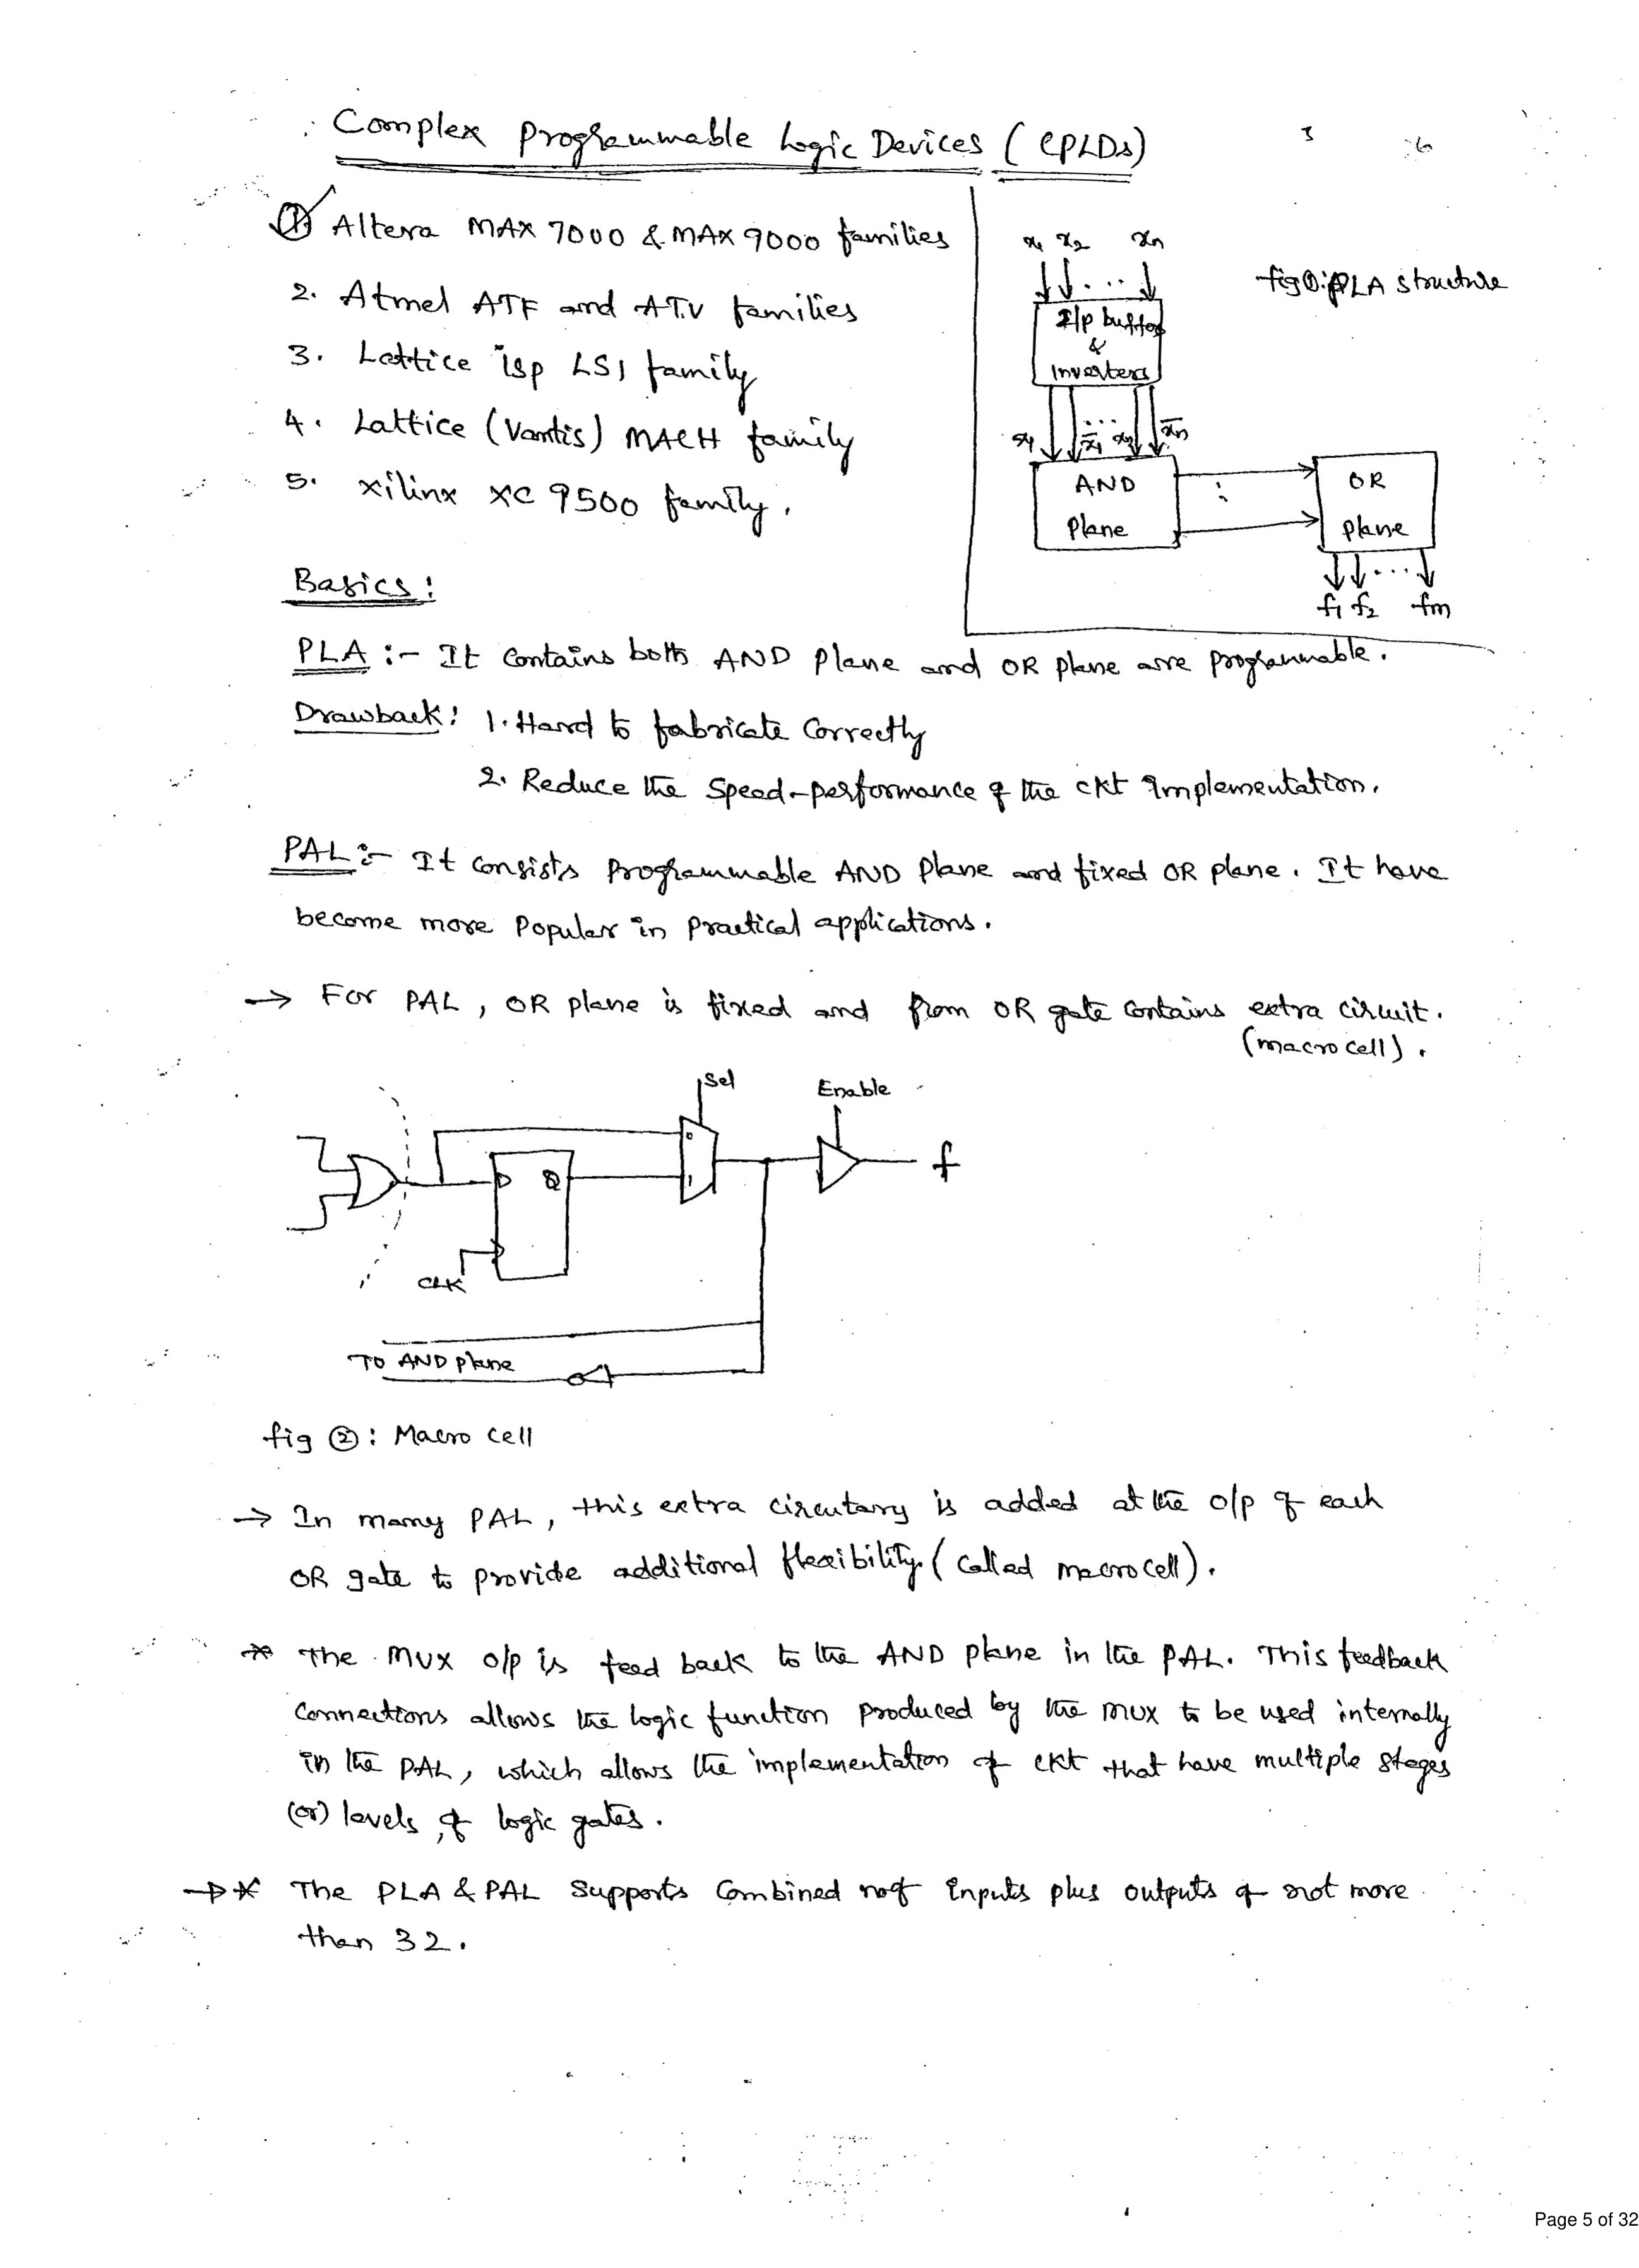 Complex Programmable Logic Devices (CPLDs)
1) Altera MAX 7000 & MAX 9000 families
2. Atmel ATF and ATV families
3. Lattice isp LSI family
4. Lattice (Vantis) MACH family
5. Xilinx XC 9500 family.
x1 x2 xn
fig①: PLA structure
I/p buffer
&
Inverters
x1 x̄1 xn x̄n
AND
Plane
OR
plane
f1 f2 fm
Basics:
PLA :- It contains both AND Plane and OR plane are programmable.
Drawback: 1. Hard to fabricate Correctly
2. Reduce the Speed-performance of the ckt Implementation.
PAL :- It consists Programmable AND Plane and fixed OR plane. It have
become more Popular in Practical applications.
→ For PAL, OR plane is fixed and from OR gate contains extra circuit.
(macro cell).
Sel
Enable
0
D Q
1
f
CLK
TO AND plane
fig ②: Macro cell
→ In many PAL, this extra circutary is added at the o/p of each
OR gate to provide additional flexibility. (Called macrocell).
* The MUX o/p is feed back to the AND plane in the PAL. This feedback
Connections allows the logic function produced by the mux to be used internally
in the PAL, which allows the implementation of ckt that have multiple stages
(or) levels of logic gates.
→* The PLA & PAL Supports Combined no of inputs plus outputs of not more
than 32.
Page 5 of 32